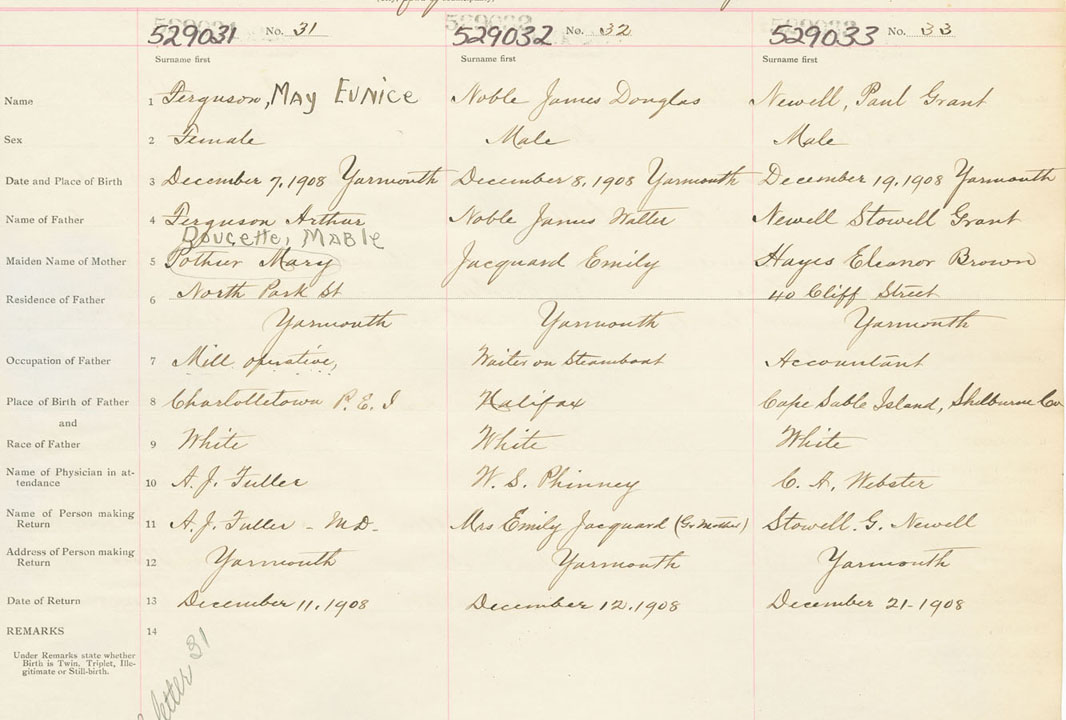 529031 No. 31 529032 No. 32 529033 No. 33
Surname first Surname first Surname first
Name 1 Ferguson, MAY EUNICE Noble James Douglas Newell, Paul Grant
Sex 2 Female Male Male
Date and Place of Birth 3 December 7, 1908 Yarmouth December 8, 1908 Yarmouth December 19, 1908 Yarmouth
Name of Father 4 Ferguson Arthur Noble James Walter Newell Stowell Grant
DOUCETTE, MABLE
Maiden Name of Mother 5 Pothier Mary Jacquard Emily Hayes Eleanor Brown
Residence of Father 6 North Park St 40 Cliff Street
Yarmouth Yarmouth Yarmouth
Occupation of Father 7 Mill operative, Waiter on Steamboat Accountant
Place of Birth of Father 8 Charlottetown P.E.I Halifax Cape Sable Island, Shelburne Co
and
Race of Father 9 White White White
Name of Physician in at-
tendance 10 A. J. Fuller W. S. Phinney C. A. Webster
Name of Person making
Return 11 A. J. Fuller - M.D. Mrs Emily Jacquard (Gr. Mother) Stowell. G. Newell
Address of Person making
Return 12 Yarmouth Yarmouth Yarmouth
Date of Return 13 December 11, 1908 December 12, 1908 December 21 - 1908
REMARKS 14
Under Remarks state whether
Birth is Twin, Triplet, Ille-
gitimate or Still-birth.
letter 31